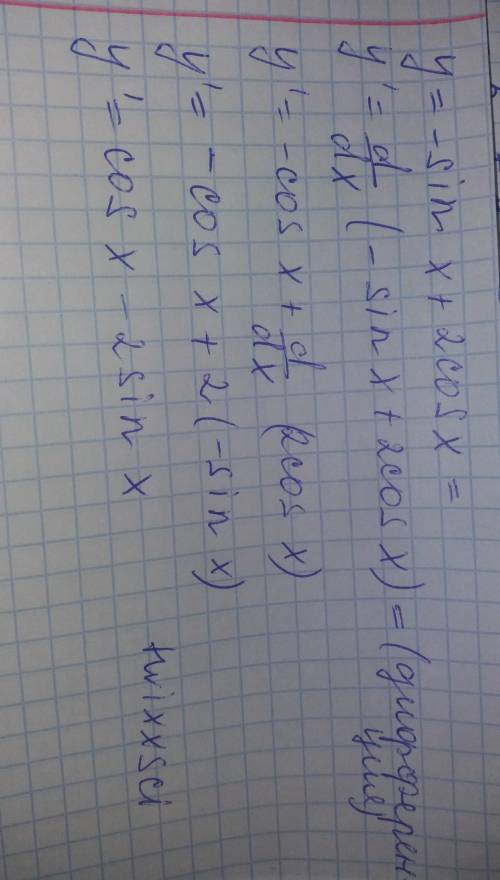 y = -sin x + 2cos x =
y' = d/dx (-sin x + 2cos x) = (дифферен
цируем)
y' = -cos x + d/dx (2cos x)
y' = -cos x + 2(-sin x)
y' = cos x - 2 sin x
twixxsci